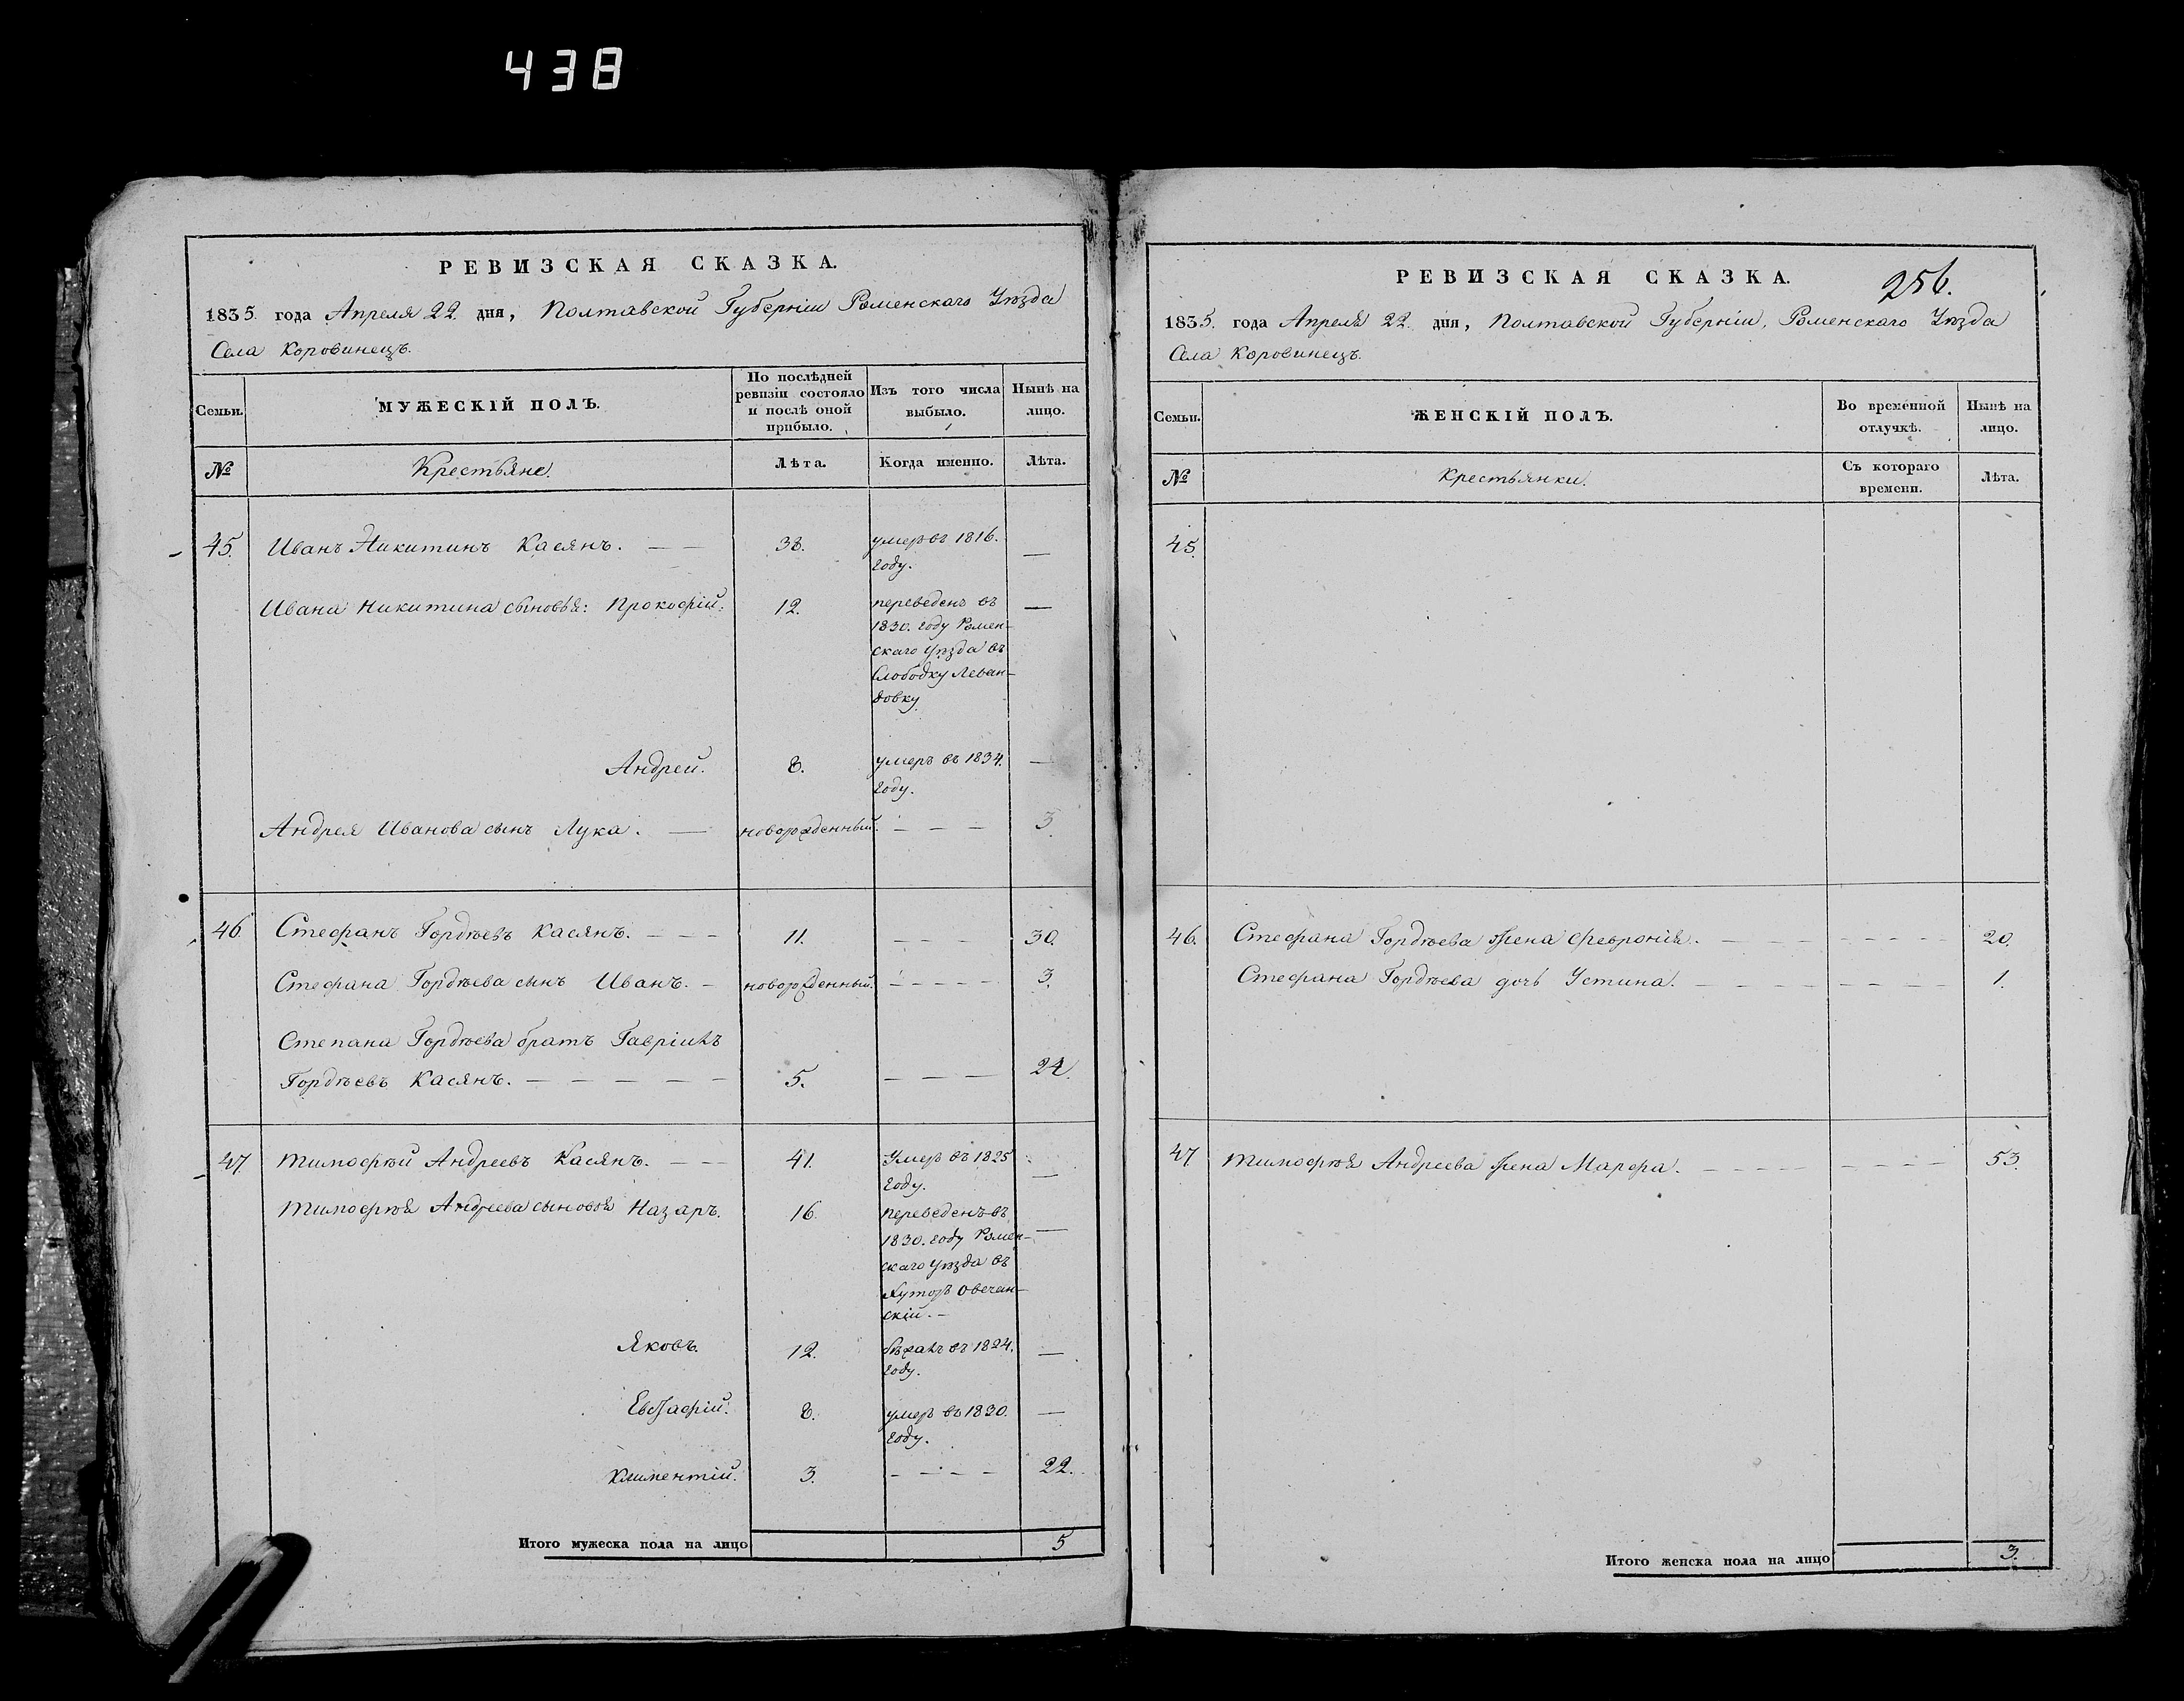 438
РЕВИЗСКАЯ СКАЗКА.
1835. года Апреля 22. дня, Полтавской Губерніи Роменскаго Уѣзда
Села Коровинецъ.
Семьи. МУЖЕСКІЙ ПОЛЪ. По послѣдней ревизіи состояло и послѣ оной прибыло. Изъ того числа выбыло. Нынѣ на лицо.
№ Крестьяне. Лѣта. Когда именно. Лѣта.
45. Иванъ Никитинъ Касянъ. — — 38. умеръ въ 1816. —
году.
Ивана Никитина сыновья: Прокофій. 12. переведенъ въ —
1830. году Ромен-
скаго уѣзда въ
Слободку Леван-
довку
Андрей. 8. умеръ въ 1834. —
году.
Андрея Иванова сынъ Лука. — новорожденный. — — — 3.
46. Стефанъ Гордѣевъ Касянъ. — — — 11. — — — 30.
Стефана Гордѣева сынъ Иванъ. — новорожденный. — — — — 3.
Степана Гордѣева братъ Гавріилъ
Гордѣевъ Касянъ. — — — — — 5. — — — 24.
47. Тимофѣй Андреевъ Касянъ. — — 41. Умеръ въ 1825 —
году.
Тимофѣя Андреева сыновья Назаръ. 16. переведенъ въ —
1830. году Ромен-
скаго уѣзда въ
Хуторъ Овечан-
скій. —
Яковъ. 12. бѣжалъ въ 1824. —
году.
Евстафій. 8. умеръ въ 1830. —
году.
Климентій. 3. — — — — 22.
Итого мужеска пола на лицо 5
РЕВИЗСКАЯ СКАЗКА. 256.
1835. года Апреля 22. дня, Полтавской Губерніи, Роменскаго Уѣзда
Села Коровинецъ.
Семьи. ЖЕНСКІЙ ПОЛЪ. Во временной отлучкѣ. Нынѣ на лицо.
№ Крестьянки. Съ котораго времени. Лѣта.
45.
46. Стефана Гордѣева жена Февронія. — — — — — — — 20.
Стефана Гордѣева дочь Устина. — — — — — — — 1.
47. Тимофѣя Андреева жена Марфа. — — — — — — — 53.
Итого женска пола на лицо 3.